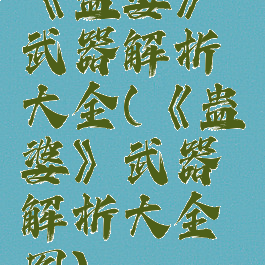 《蛊婆》
武器解析
大全(《蛊
婆》武器
解析大全
图)